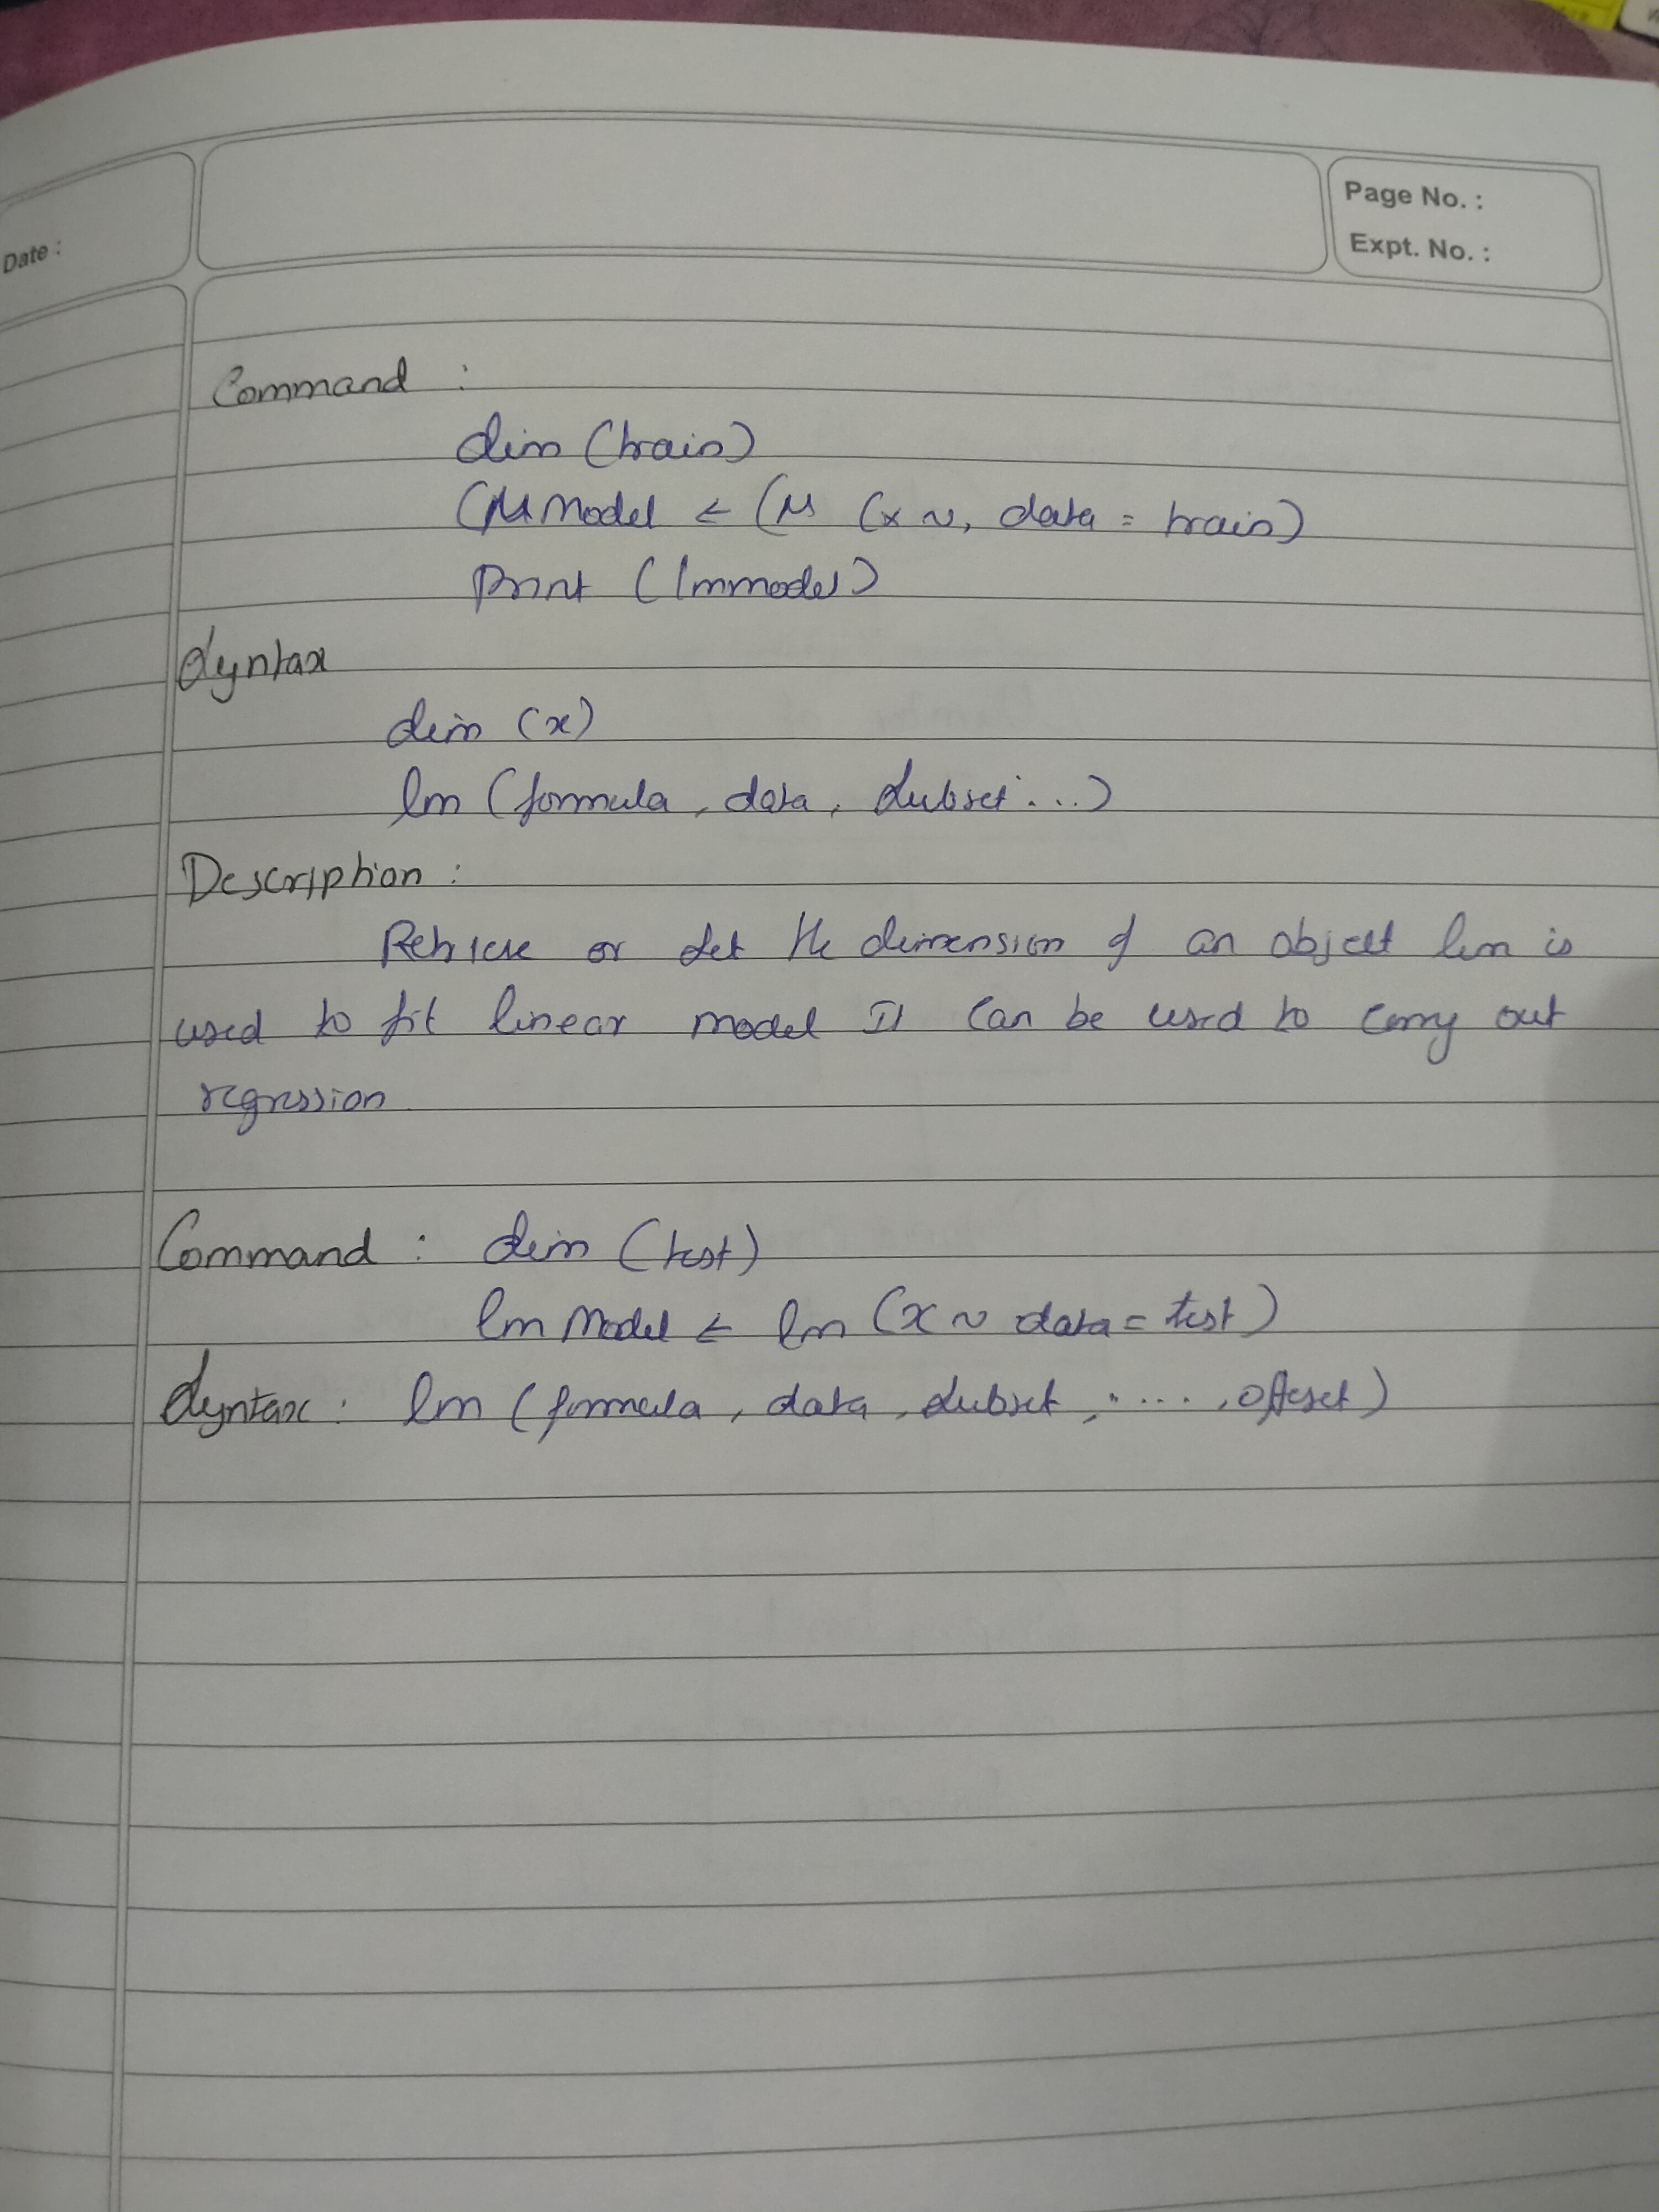 Page No. :
Date :
Expt. No. :
Command :
dim (train)
lm Model ← lm (x ~, data = train)
Print (lmmodel)
Syntax
dim (x)
lm (formula, data, subset ...)
Description :
Retrieve or set the dimension of an object lm is
used to fit linear model It can be used to carry out
regression
Command : dim (test)
lm Model ← lm (x ~ data = test)
Syntax : lm (formula, data, subset, ...., offset)